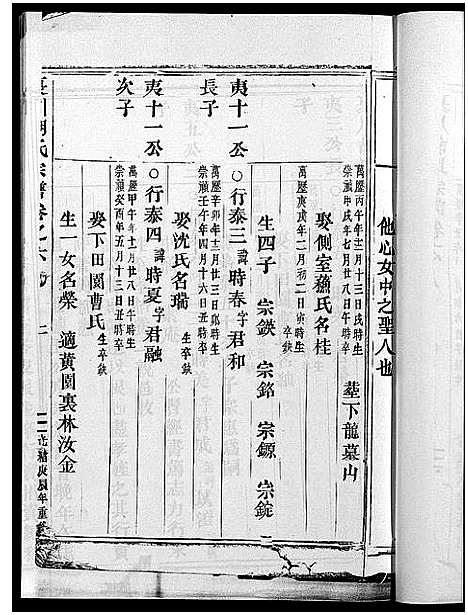 他心女中之聖人也
萬曆丙午年十二月十三日戌時生
崇禎甲戌年七月廿八日午時卒
葬下龍墓山
娶側室蘓氏名桂
萬曆庚戌年二月初二日寅時生
卒缺
生四子 宗鍈 宗銘 宗鏢 宗錠
夷十一公 長子
○行泰三 諱時春 字君和
萬曆辛卯年十二月廿三日卯時生
崇禎壬午年四月十六日亥時卒
娶沈氏名瑞 生卒缺
夷十一公 次子
○行泰四 諱時夏 字君融
萬曆甲午年十一月廿八日午時生
崇禎癸酉年五月十三日丑時卒
娶下田園曹氏 生卒缺
生一女名榮 適黃園裏林汝金
胡氏宗譜卷之六
二
光緒庚辰年重